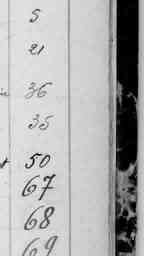 5
21
36
35
50
67
68
69